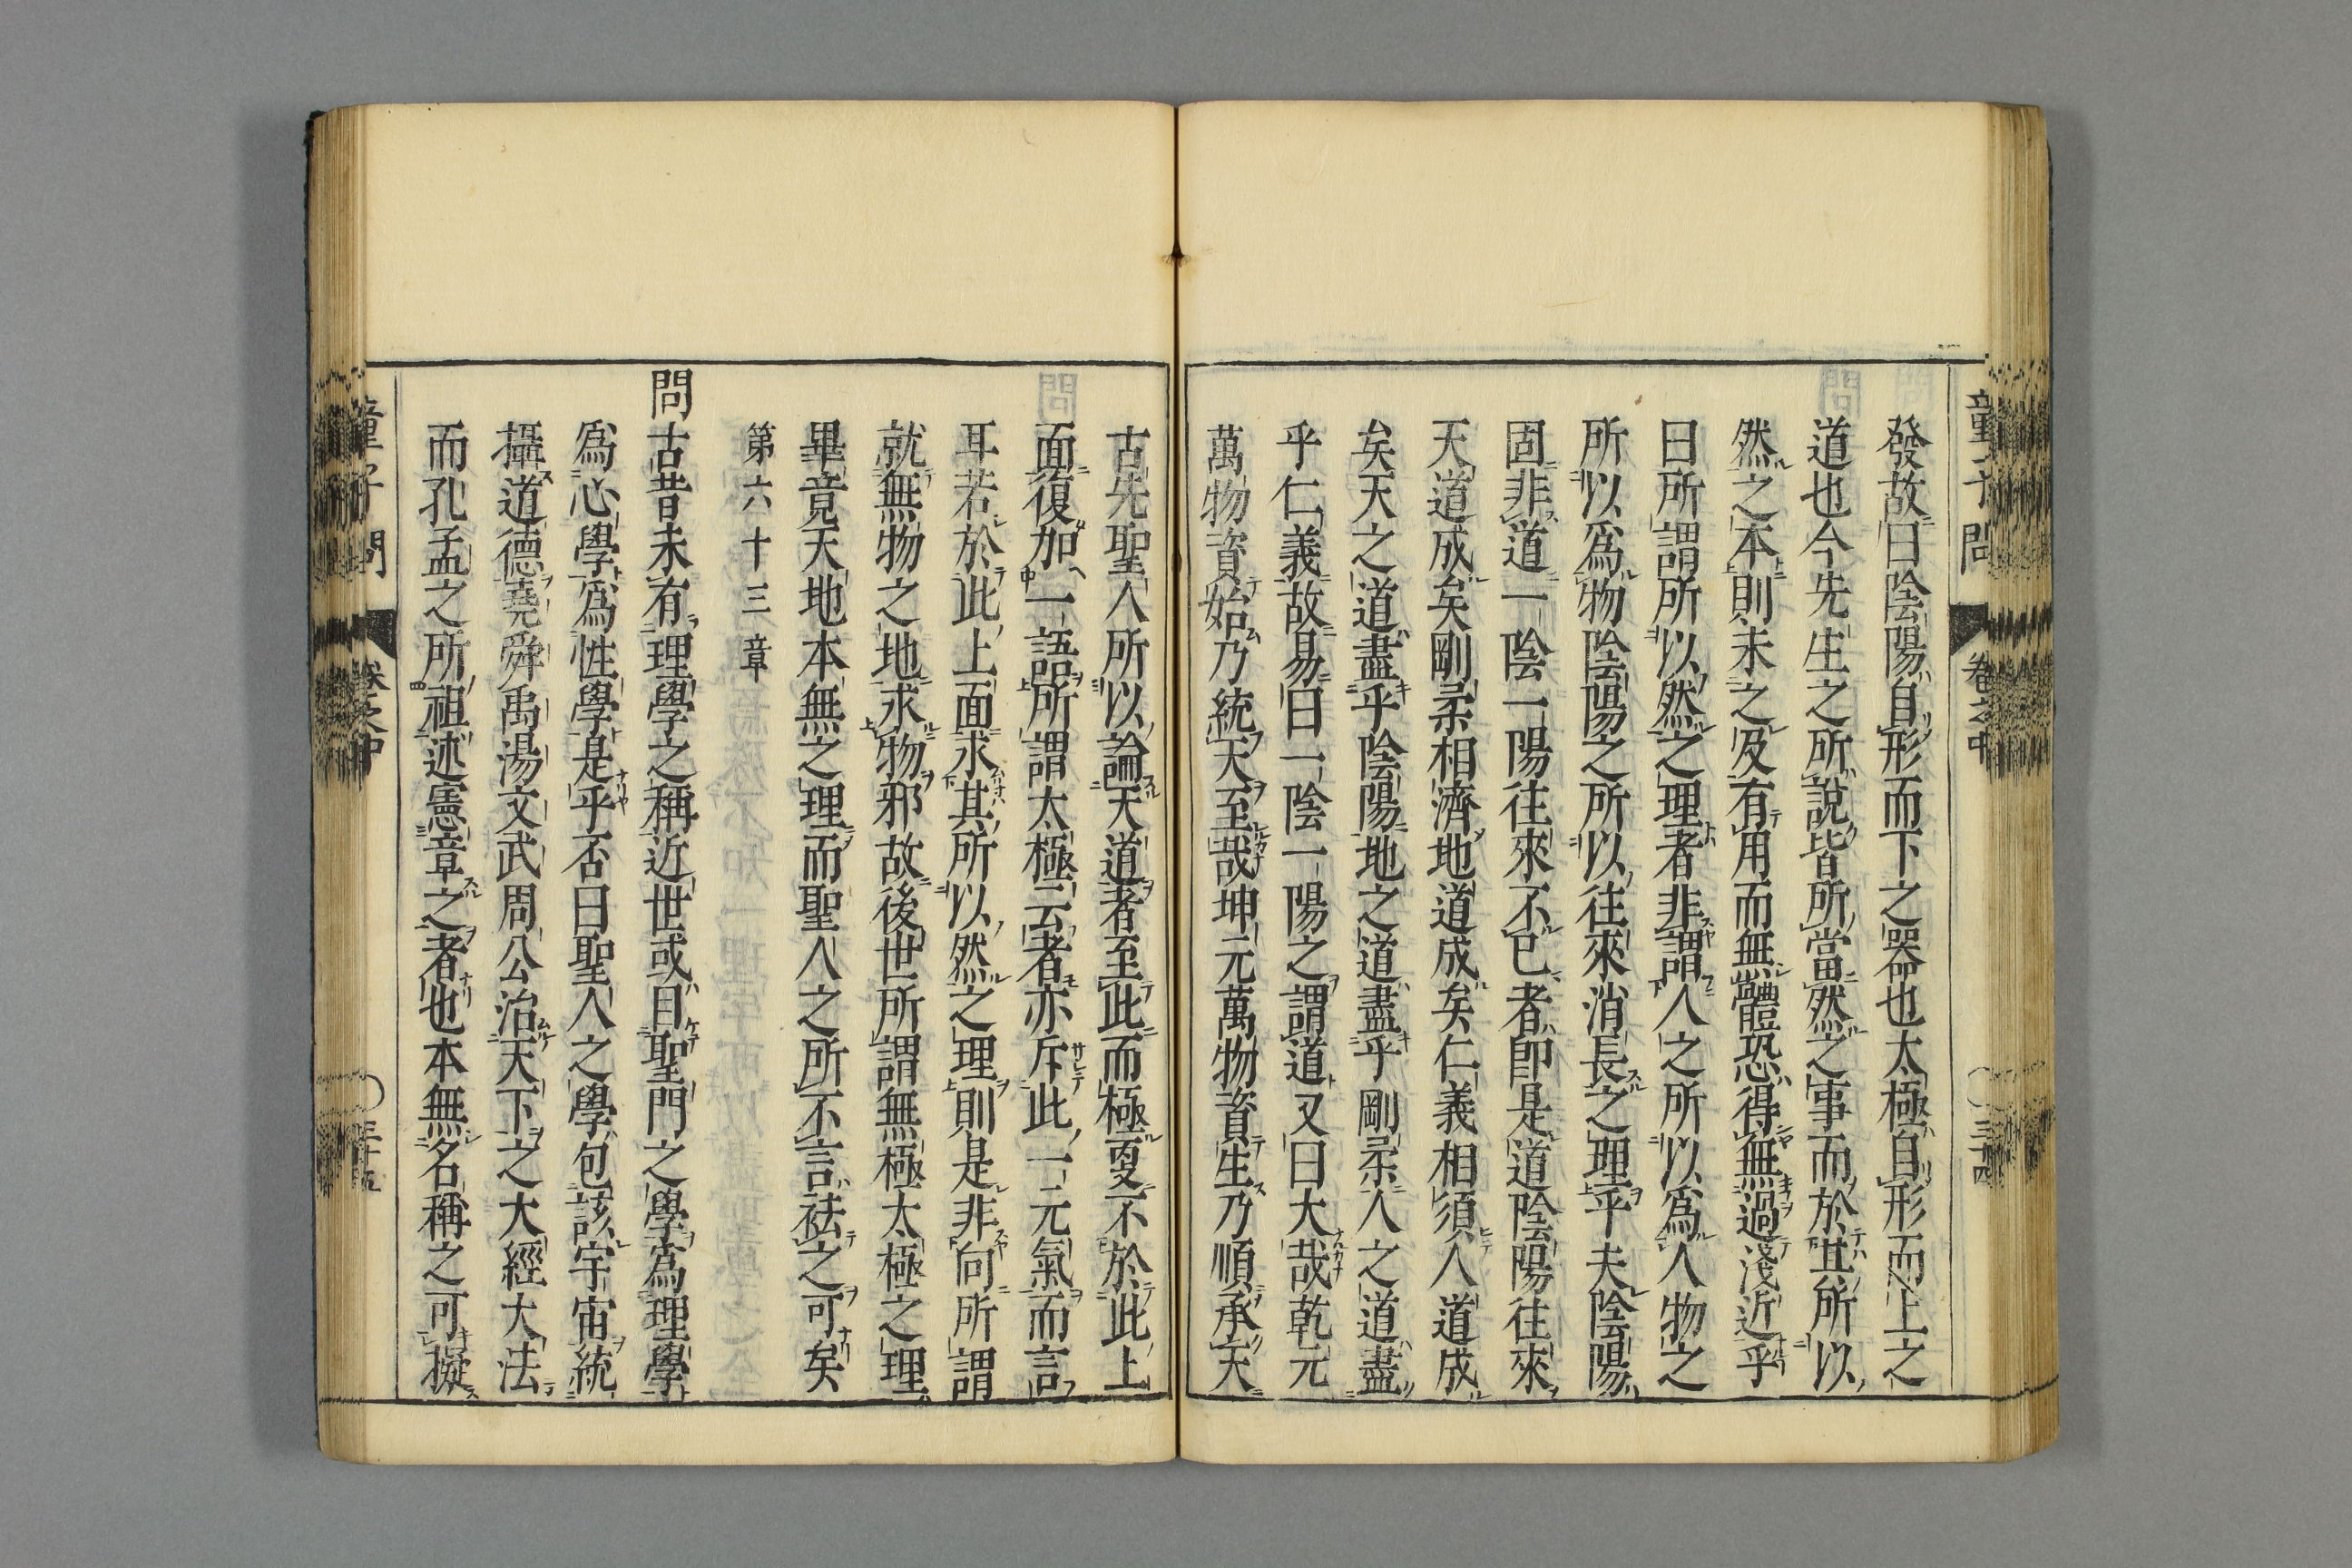 童子問 卷之中 三十四
發故曰陰陽自形而下之器也太極自形而上之
道也今先生之所說皆所當然之事而於其所以
然之本則未之及有用而無體恐得無過淺近乎
曰所謂所以然之理者非謂人之所以爲人物之
所以爲物陰陽之所以往來消長之理乎夫陰陽
固非道一陰一陽往來不已者卽是道陰陽往來
天道成矣剛柔相濟地道成矣仁義相須人道成
矣天之道盡乎陰陽地之道盡乎剛柔人之道盡
乎仁義故易曰一陰一陽之謂道又曰大哉乾元
萬物資始乃統天至哉坤元萬物資生乃順承天
古先聖人所以論天道者至此而極更不於此上
面復加一語所謂太極云者亦斥此一元氣而言
耳若於此上面求其所以然之理則是非向所謂
就無物之地求物邪故後世所謂無極太極之理
畢竟天地本無之理而聖人之所不言祛之可矣
第六十三章
問古昔未有理學之稱近世或目聖門之學爲理學
爲心學爲性學是乎否曰聖人之學包該宇宙統
攝道德堯舜禹湯文武周公治天下之大經大法
而孔孟之所祖述憲章之者也本無名稱之可擬
童子問 卷之中 三十五